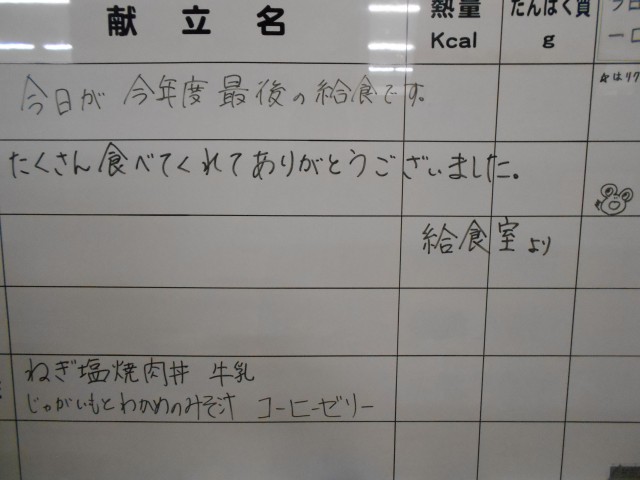 献立名 熱量 たんぱく質
Kcal g
今日が 今年度 最後の給食です。
☆はリク
たくさん食べてくれてありがとうございました。
給食室より
ねぎ塩焼肉丼 牛乳
じゃがいもとわかめのみそ汁 コーヒーゼリー